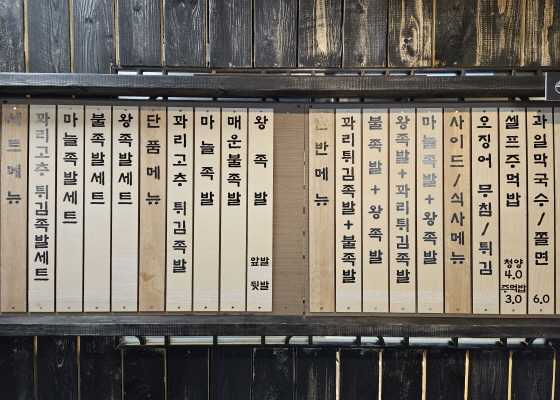 세트메뉴
꽈리고추 튀김족발세트
마늘족발세트
불족발세트
왕족발세트
단품메뉴
꽈리고추 튀김족발
마늘족발
매운불족발
왕족발
앞발
뒷발
반반메뉴
꽈리튀김족발+불족발
불족발+왕족발
왕족발+꽈리튀김족발
마늘족발+왕족발
사이드/식사메뉴
오징어 무침/튀김
셀프주먹밥
청양
4.0
주먹밥
3.0
과일막국수/쫄면
6.0